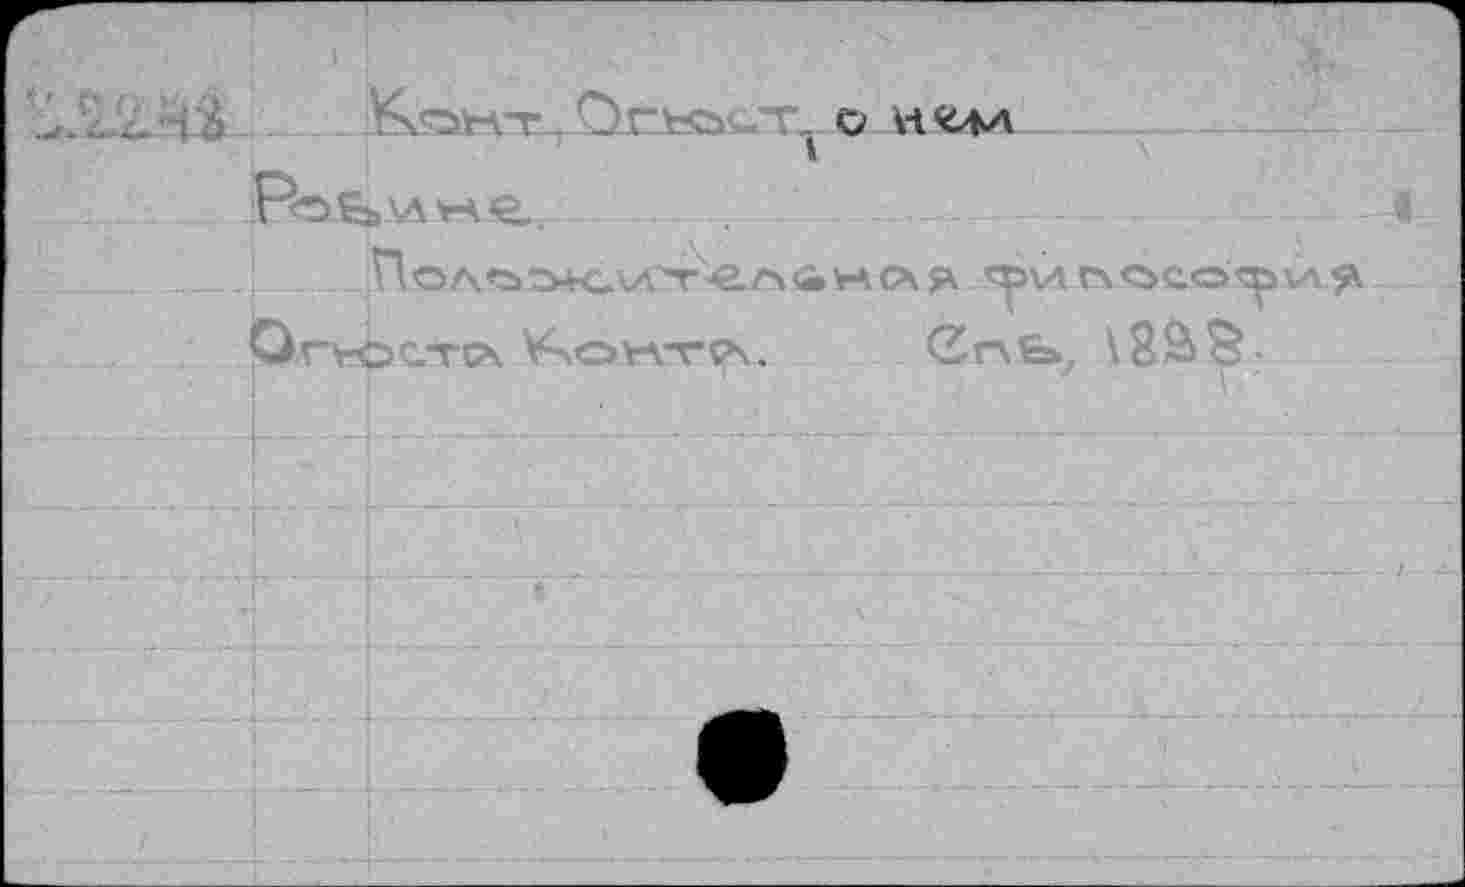 Конт, Огюст, о нем
Робине.
Положительная философия
Огюста Конта. Спб,